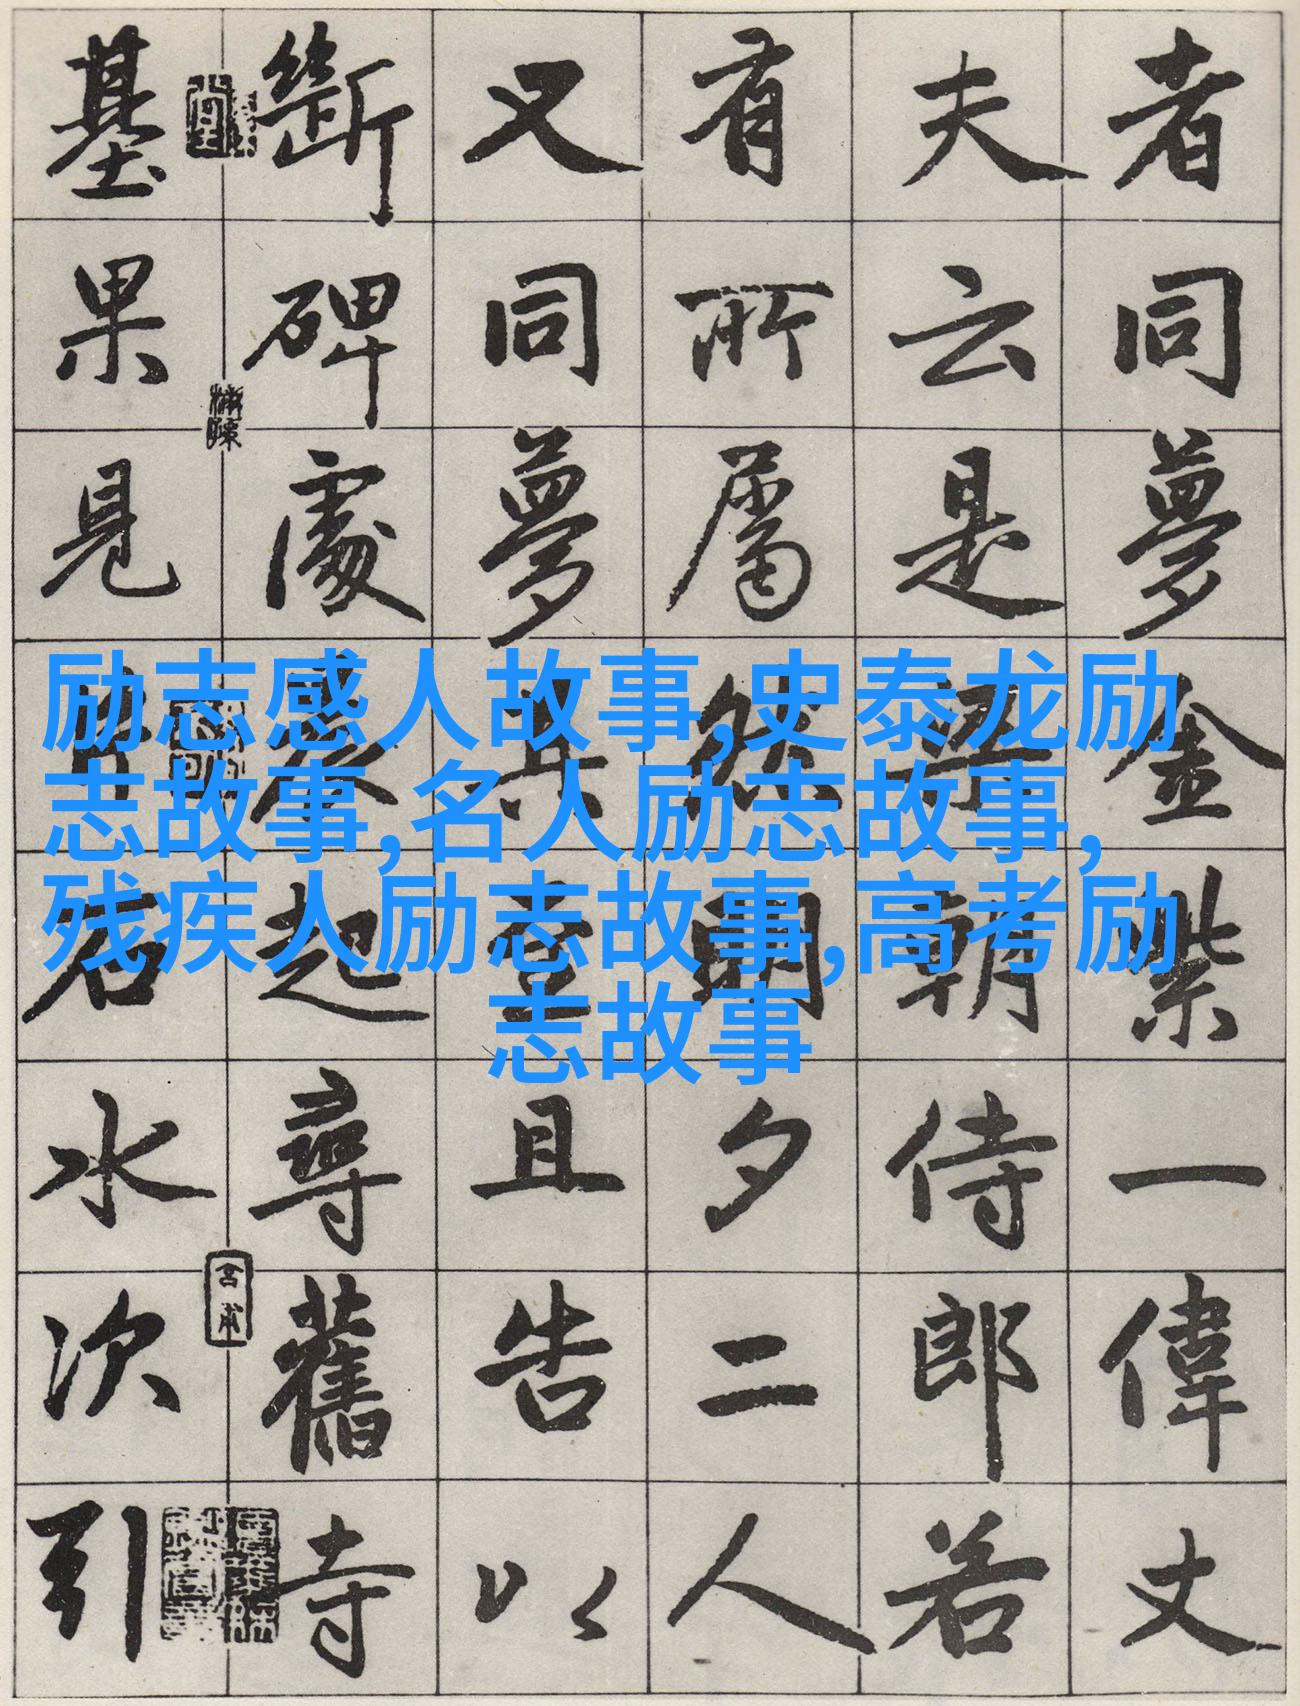 者同夢金紫一偉丈
夫云是梁朝侍郎若
有所属然明夕二人
又同夢且告以
斷碑處起尋舊寺
基果見石水次引
励志感人故事,史泰龙励
志故事,名人励志故事,
残疾人励志故事,高考励
志故事